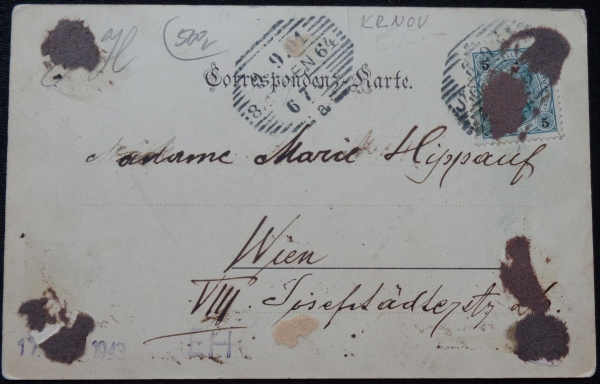 502
KRNOV
Correspondenz-Karte.
5 5
Madame Marie Hippauf
Wien
VIII. Josefstädterstr.
1943
EH